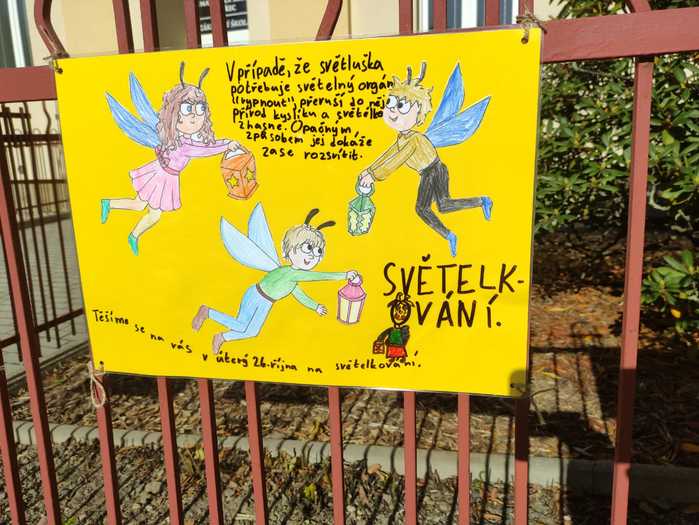 V případě, že světluška
potřebuje světelný orgán
"vypnout", přeruší do něj
přívod kyslíku a světélko
zhasne. Opačným
způsobem jej dokáže
zase rozsvítit.
SVĚTELK-
OVÁNÍ.
Těšíme se na vás v úterý 26. října na světelkování.